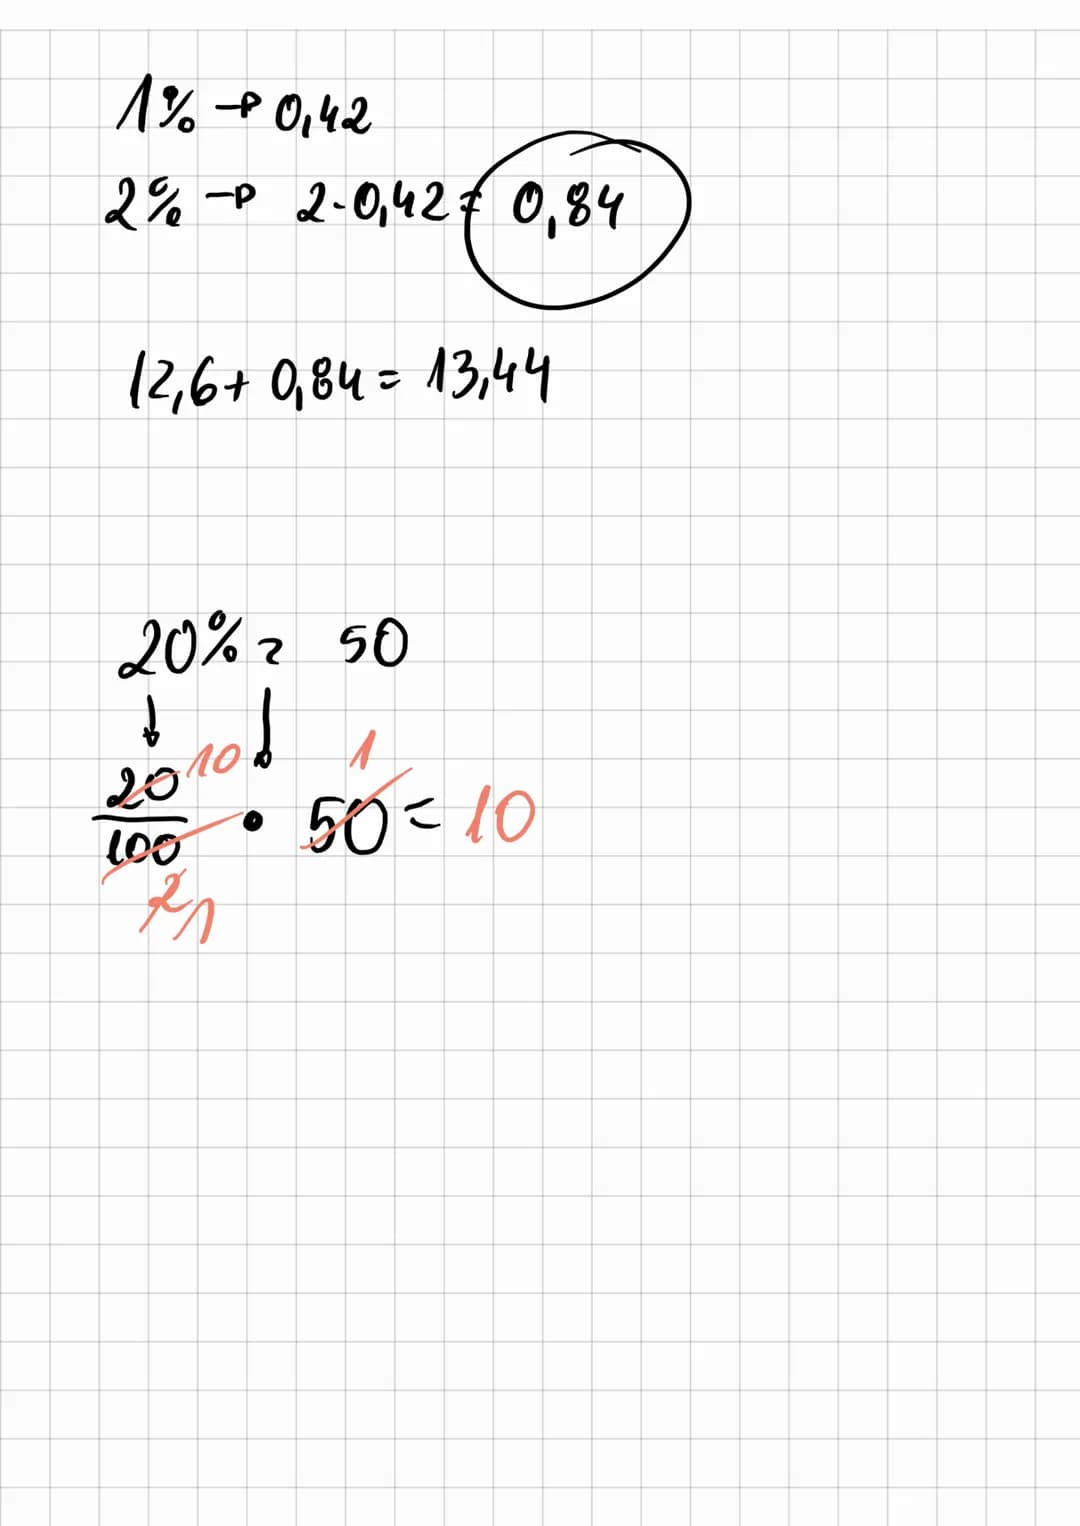 1% → 0,42
2% → 2·0,42 = 0,84
12,6 + 0,84 = 13,44
20% z 50
↓ ↓
20 10 1
100 · 50 = 10
2 1